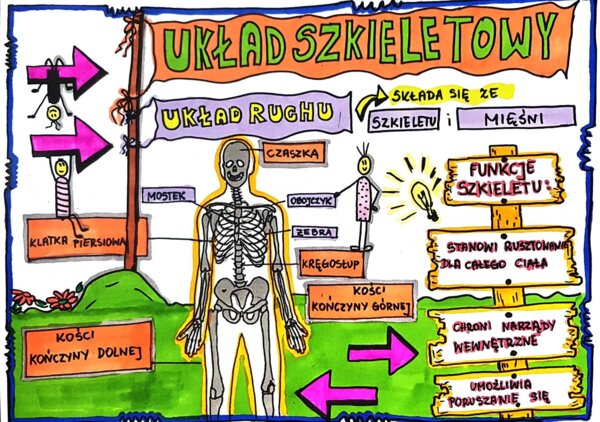 UKŁAD SZKIELETOWY
UKŁAD RUCHU
SKŁADA SIĘ ZE
SZKIELETU i MIĘŚNI
CZASZKA
MOSTEK
OBOJCZYK
ŻEBRA
KLATKA PIERSIOWA
KRĘGOSŁUP
KOŚCI
KOŃCZYNY GÓRNEJ
KOŚCI
KOŃCZYNY DOLNEJ
FUNKCJE
SZKIELETU:
STANOWI RUSZTOWANIE
DLA CAŁEGO CIAŁA
CHRONI NARZĄDY
WEWNĘTRZNE
UMOŻLIWIA
PORUSZANIE SIĘ